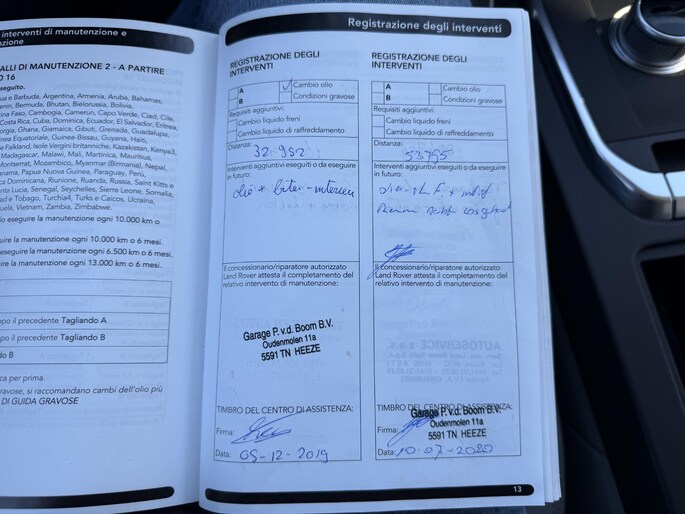 interventi di manutenzione e
enzione
ALLI DI MANUTENZIONE 2 - A PARTIRE
O 16
seguito.
ua e Barbuda, Argentina, Armenia, Aruba, Bahamas,
enin, Bermuda, Bhutan, Bielorussia, Bolivia,
kina Faso, Cambogia, Camerun, Capo Verde, Ciad, Cile,
Costa Rica, Cuba, Dominica, Ecuador, El Salvador, Eritrea,
orgia, Ghana, Giamaica, Gibuti, Grenada, Guadalupa,
inea Equatoriale, Guinea-Bissau, Guyana, Haiti,
e Falkland, Isole Vergini britanniche, Kazakistan, Kenya3,
Madagascar, Malawi, Mali, Martinica, Mauritius,
Montserrat, Mozambico, Myanmar (Birmania), Nepal,
anama, Papua Nuova Guinea, Paraguay, Perù,
ca Dominicana, Riunione, Ruanda, Russia, Saint Kitts e
anta Lucia, Senegal, Seychelles, Sierra Leone, Somalia,
d e Tobago, Turchia4, Turks e Caicos, Ucraina,
uela, Vietnam, Zambia, Zimbabwe.
io eseguire la manutenzione ogni 10.000 km o
uire la manutenzione ogni 10.000 km o 6 mesi.
uire la manutenzione ogni 6.500 km o 6 mesi.
uire la manutenzione ogni 13.000 km o 6 mesi.
po il precedente Tagliando A
po il precedente Tagliando B
do B
ca per prima.
gravose, si raccomandano cambi dell'olio più
DI GUIDA GRAVOSE
Registrazione degli interventi
REGISTRAZIONE DEGLI
INTERVENTI
A
Cambio olio
B
Condizioni gravose
Requisiti aggiuntivi:
Cambio liquido freni
Cambio liquido di raffreddamento
Distanza:
32.952
Interventi aggiuntivi eseguiti o da eseguire
in futuro:
olio +
Il concessionario/riparatore autorizzato
Land Rover attesta il completamento del
relativo intervento di manutenzione:
Garage P. v.d. Boom B.V.
Oudenmolen 11a
5591 TN HEEZE
TIMBRO DEL CENTRO DI ASSISTENZA:
Firma:
Data: 05-12-2019
REGISTRAZIONE DEGLI
INTERVENTI
A
Cambio olio
B
Condizioni gravose
Requisiti aggiuntivi:
Cambio liquido freni
Cambio liquido di raffreddamento
Distanza:
53795
Interventi aggiuntivi eseguiti o da eseguire
in futuro:
Il concessionario/riparatore autorizzato
Land Rover attesta il completamento del
relativo intervento di manutenzione:
TIMBRO DEL CENTRO DI ASSISTENZA:
Garage P. v.d. Boom B.V.
Oudenmolen 11a
5591 TN HEEZE
Firma:
Data: 10-07-2020
13